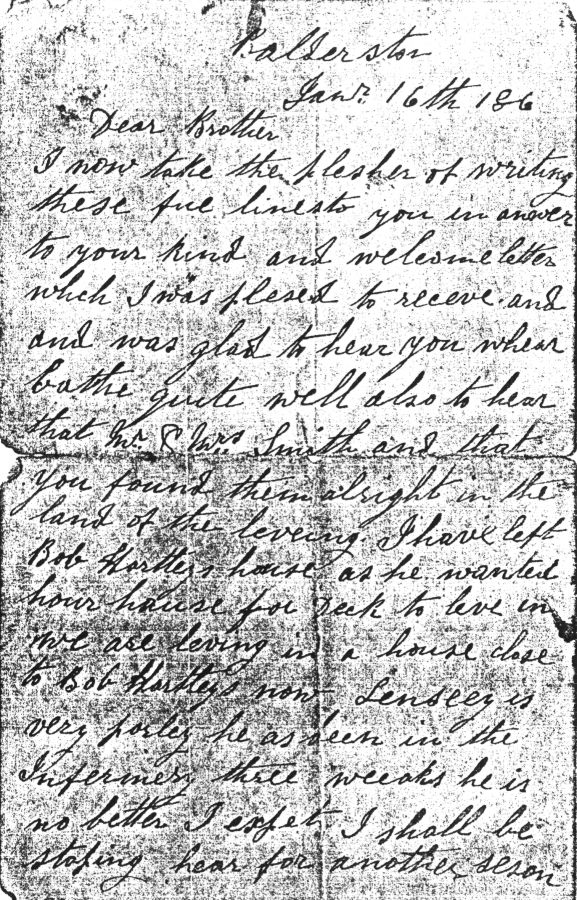 Balderston
Janr. 16th 186
Dear Brother
I now take the plesher of writing
these fue lines to you in anwer
to your kind and welcome letter
which I was plesed to receve and
and was glad to hear you whear
bothe quite well also to hear
that Mr & Mrs Smith and that
you found them alright in the
land of the leveing. I have left
Bob Hartleys house as he wanted
hour hause for Deck to leve in
we are leving in a house close
to Bob Hartleys now
very porley he as been in the
Infermery three weeaks he is
no better I expet I shall be
stoping hear for another seson